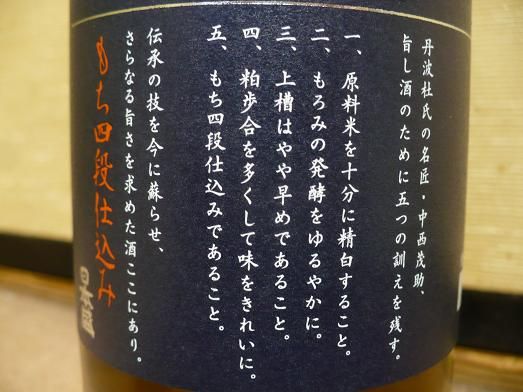 丹波杜氏の名匠・中西茂助、
旨し酒のために五つの訓えを残す。
一、原料米を十分に精白すること。
二、もろみの発酵をゆるやかに。
三、上槽はやや早めであること。
四、粕歩合を多くして味をきれいに。
五、もち四段仕込みであること。
伝承の技を今に蘇らせ、
さらなる旨さを求めた酒ここにあり。
もち四段仕込み
日本盛